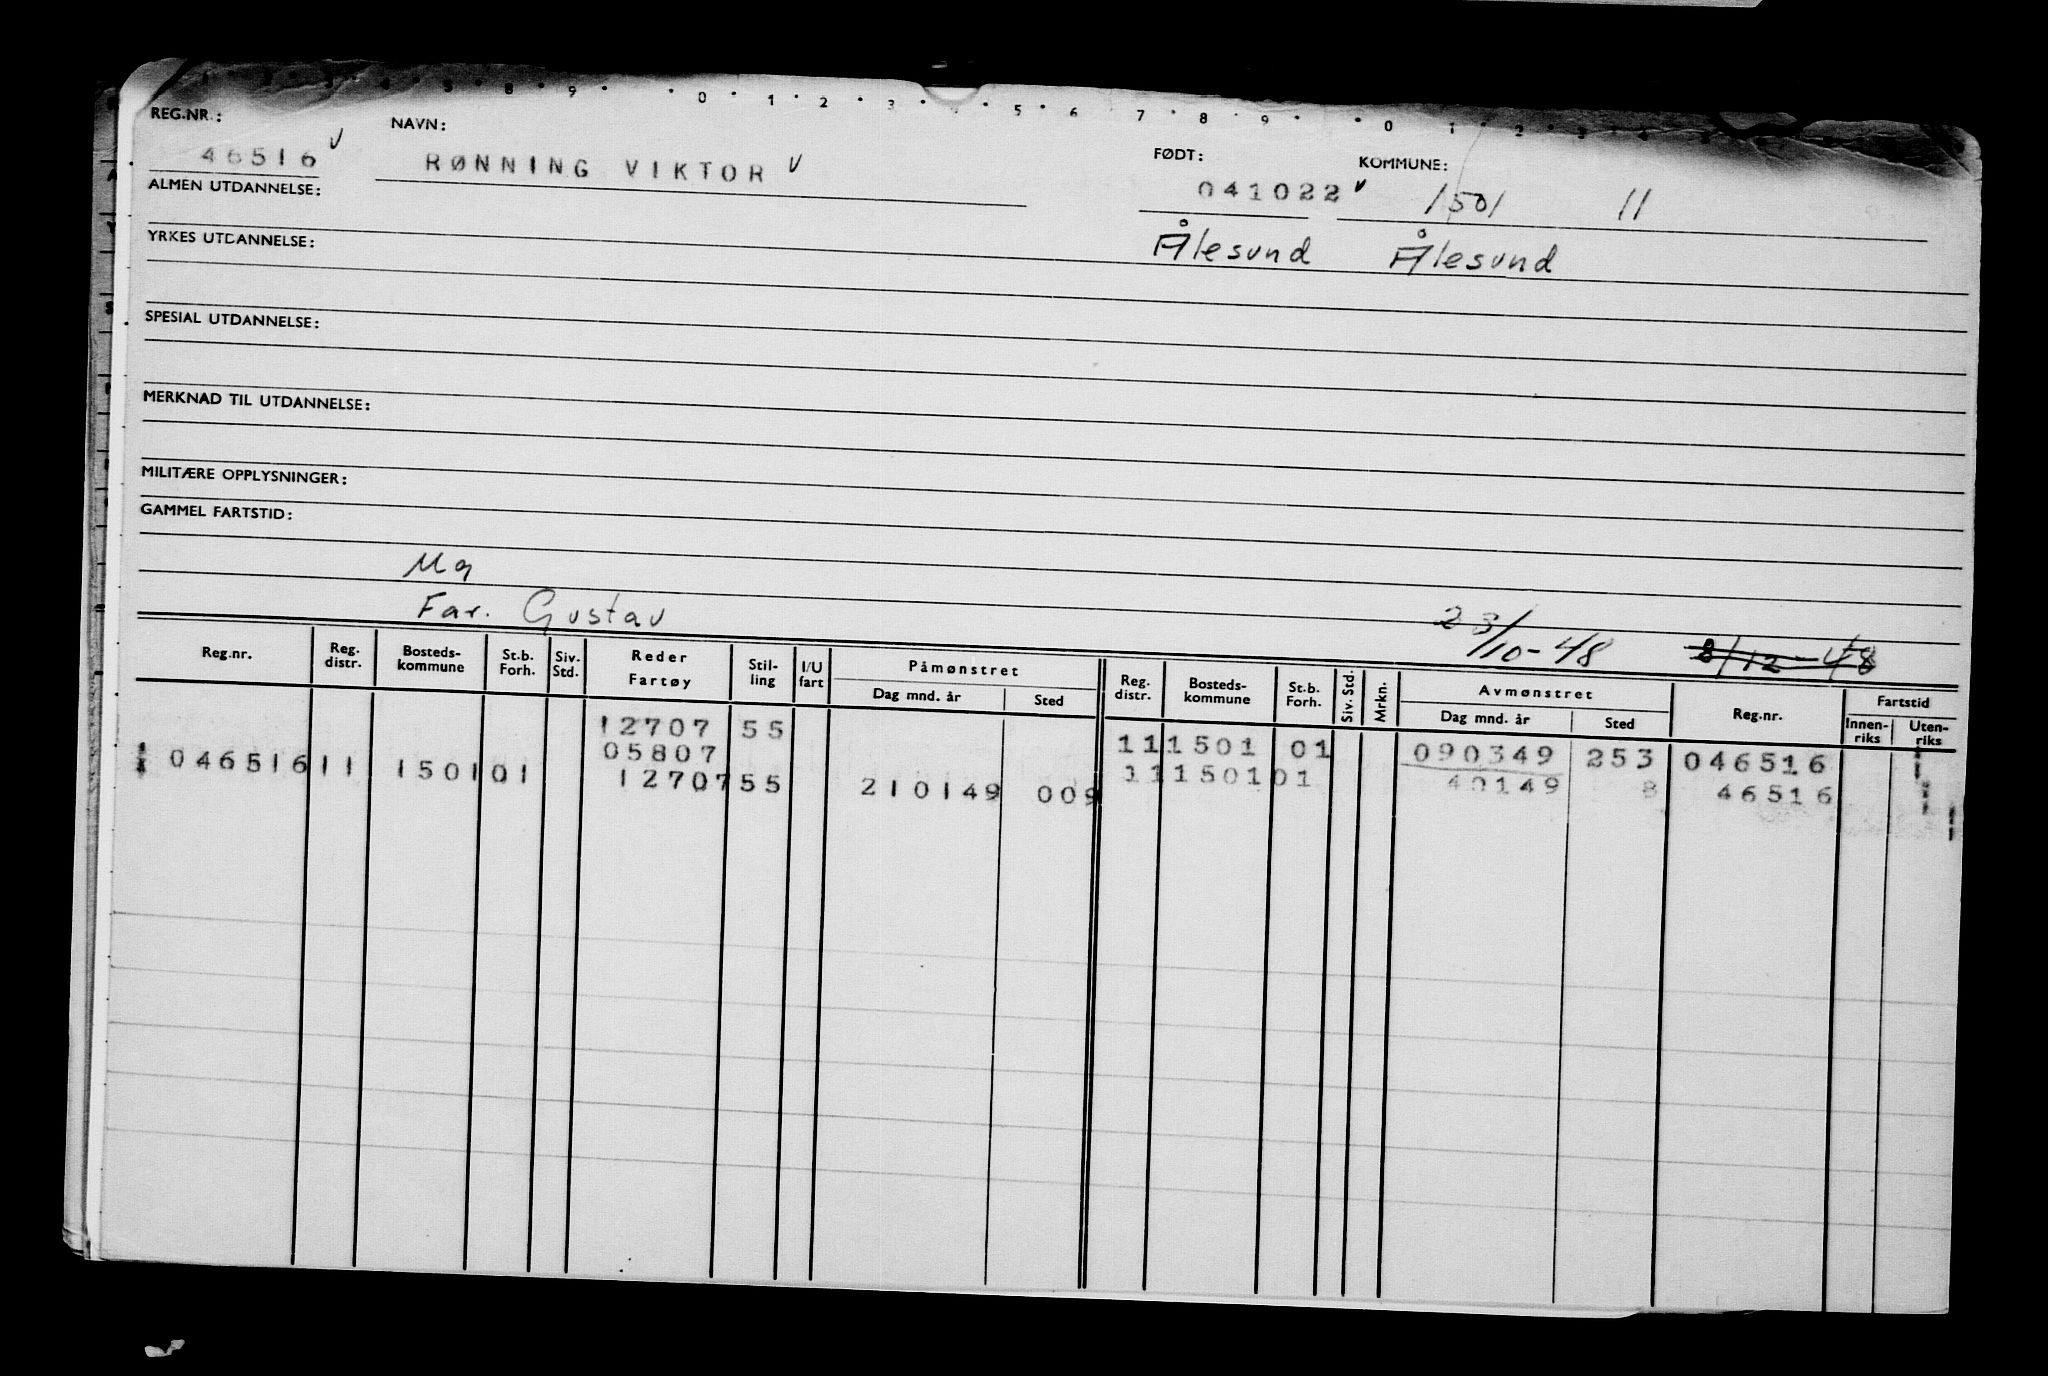 REG.NR.: NAVN: FØDT: KOMMUNE:
46516 RØNNING VIKTOR 041022 1501 11
ALMEN UTDANNELSE:
Ålesund Ålesund
YRKES UTDANNELSE:
SPESIAL UTDANNELSE:
MERKNAD TIL UTDANNELSE:
MILITÆRE OPPLYSNINGER:
GAMMEL FARTSTID:
Far. Gustav
23/10-48 8/12-48
Reg.nr. Reg. distr. Bosteds-kommune St.b. Forh. Siv. Std. Reder Fartøy Stil-ling I/U fart Påmønstret Dag mnd. år Sted Reg. distr. Bosteds-kommune St.b. Forh. Siv. Std. Mrkn. Avmønstret Dag mnd. år Sted Reg.nr. Fartstid Innen-riks Uten-riks
12707 55 11 1501 01 090349 253 046516
05807
046516 11 1501 01 12707 55 210149 009 11 1501 01 40149 8 46516